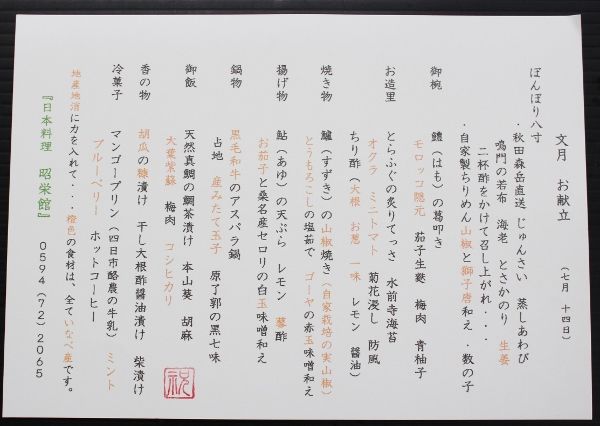 文月　お献立
（七月　十四日）
ぼんぼり八寸
・秋田森岳直送　じゅんさい　蒸しあわび
鳴門の若布　海老　とさかのり　生姜
二杯酢をかけて召し上がれ・・・
・自家製ちりめん山椒と獅子唐和え　・数の子
御椀　鱧（はも）の葛叩き
モロッコ隠元　茄子生麩　梅肉　青柚子
お造里　とらふぐの炙りてっさ　水前寺海苔
オクラ　ミニトマト　菊花浸し　防風
ちり酢（大根　お葱　一味　レモン　醤油）
焼き物　鱸（すずき）の山椒焼き（自家栽培の実山椒）
とうもろこしの塩茹で　ゴーヤの赤玉味噌和え
揚げ物　鮎（あゆ）の天ぷら　レモン　蓼酢
お茄子と桑名産セロリの白玉味噌和え
鍋物　黒毛和牛のアスパラ鍋
占地　産みたて玉子　原了郭の黒七味
御飯　天然真鯛の鯛茶漬け　本山葵　胡麻
大葉紫蘇　梅肉　コシヒカリ
香の物　胡瓜の糠漬け　干し大根酢醤油漬け　柴漬け
冷菓子　マンゴープリン（四日市酪農の牛乳）　ミント
ブルーベリー　ホットコーヒー
地産地消に力を入れて・・・橙色の食材は、全ていなべ産です。
『日本料理　昭栄館』　０５９４（７２）２０６５
祝